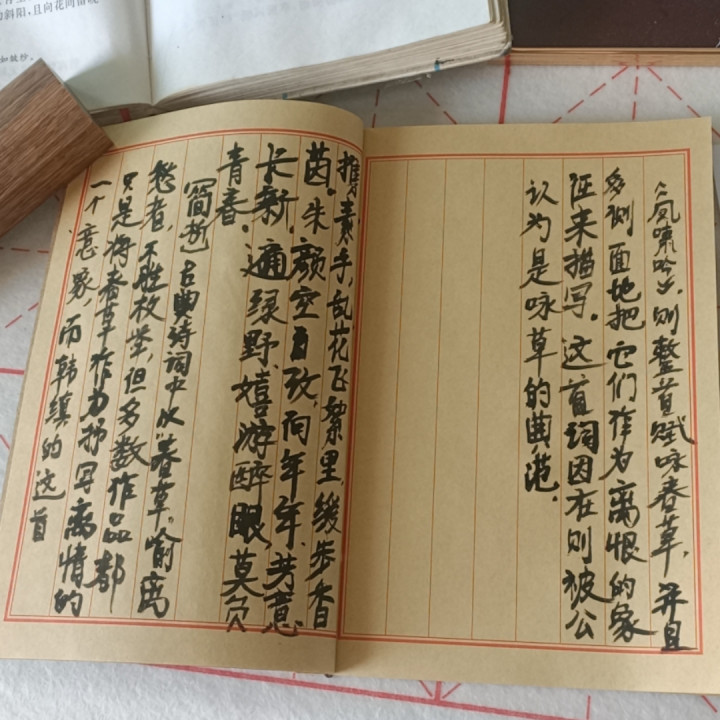 斜阳，且向花间留晚
携素手，乱花飞絮里，缓步香
茵。朱颜空自改，向年年，芳意
长新，遍绿野，嬉游醉眼，莫负
青春。
［简析］古典诗词中以“春草”喻离
愁者，不胜枚举，但多数作品都
只是将春草作为抒写离情的
一个意象，而韩缜的这首
《凤啸吟》，则整首赋咏春草，并且
多侧面地把它们作为离恨的象
征来描写。这首词因在则被公
认为是咏草的典范。